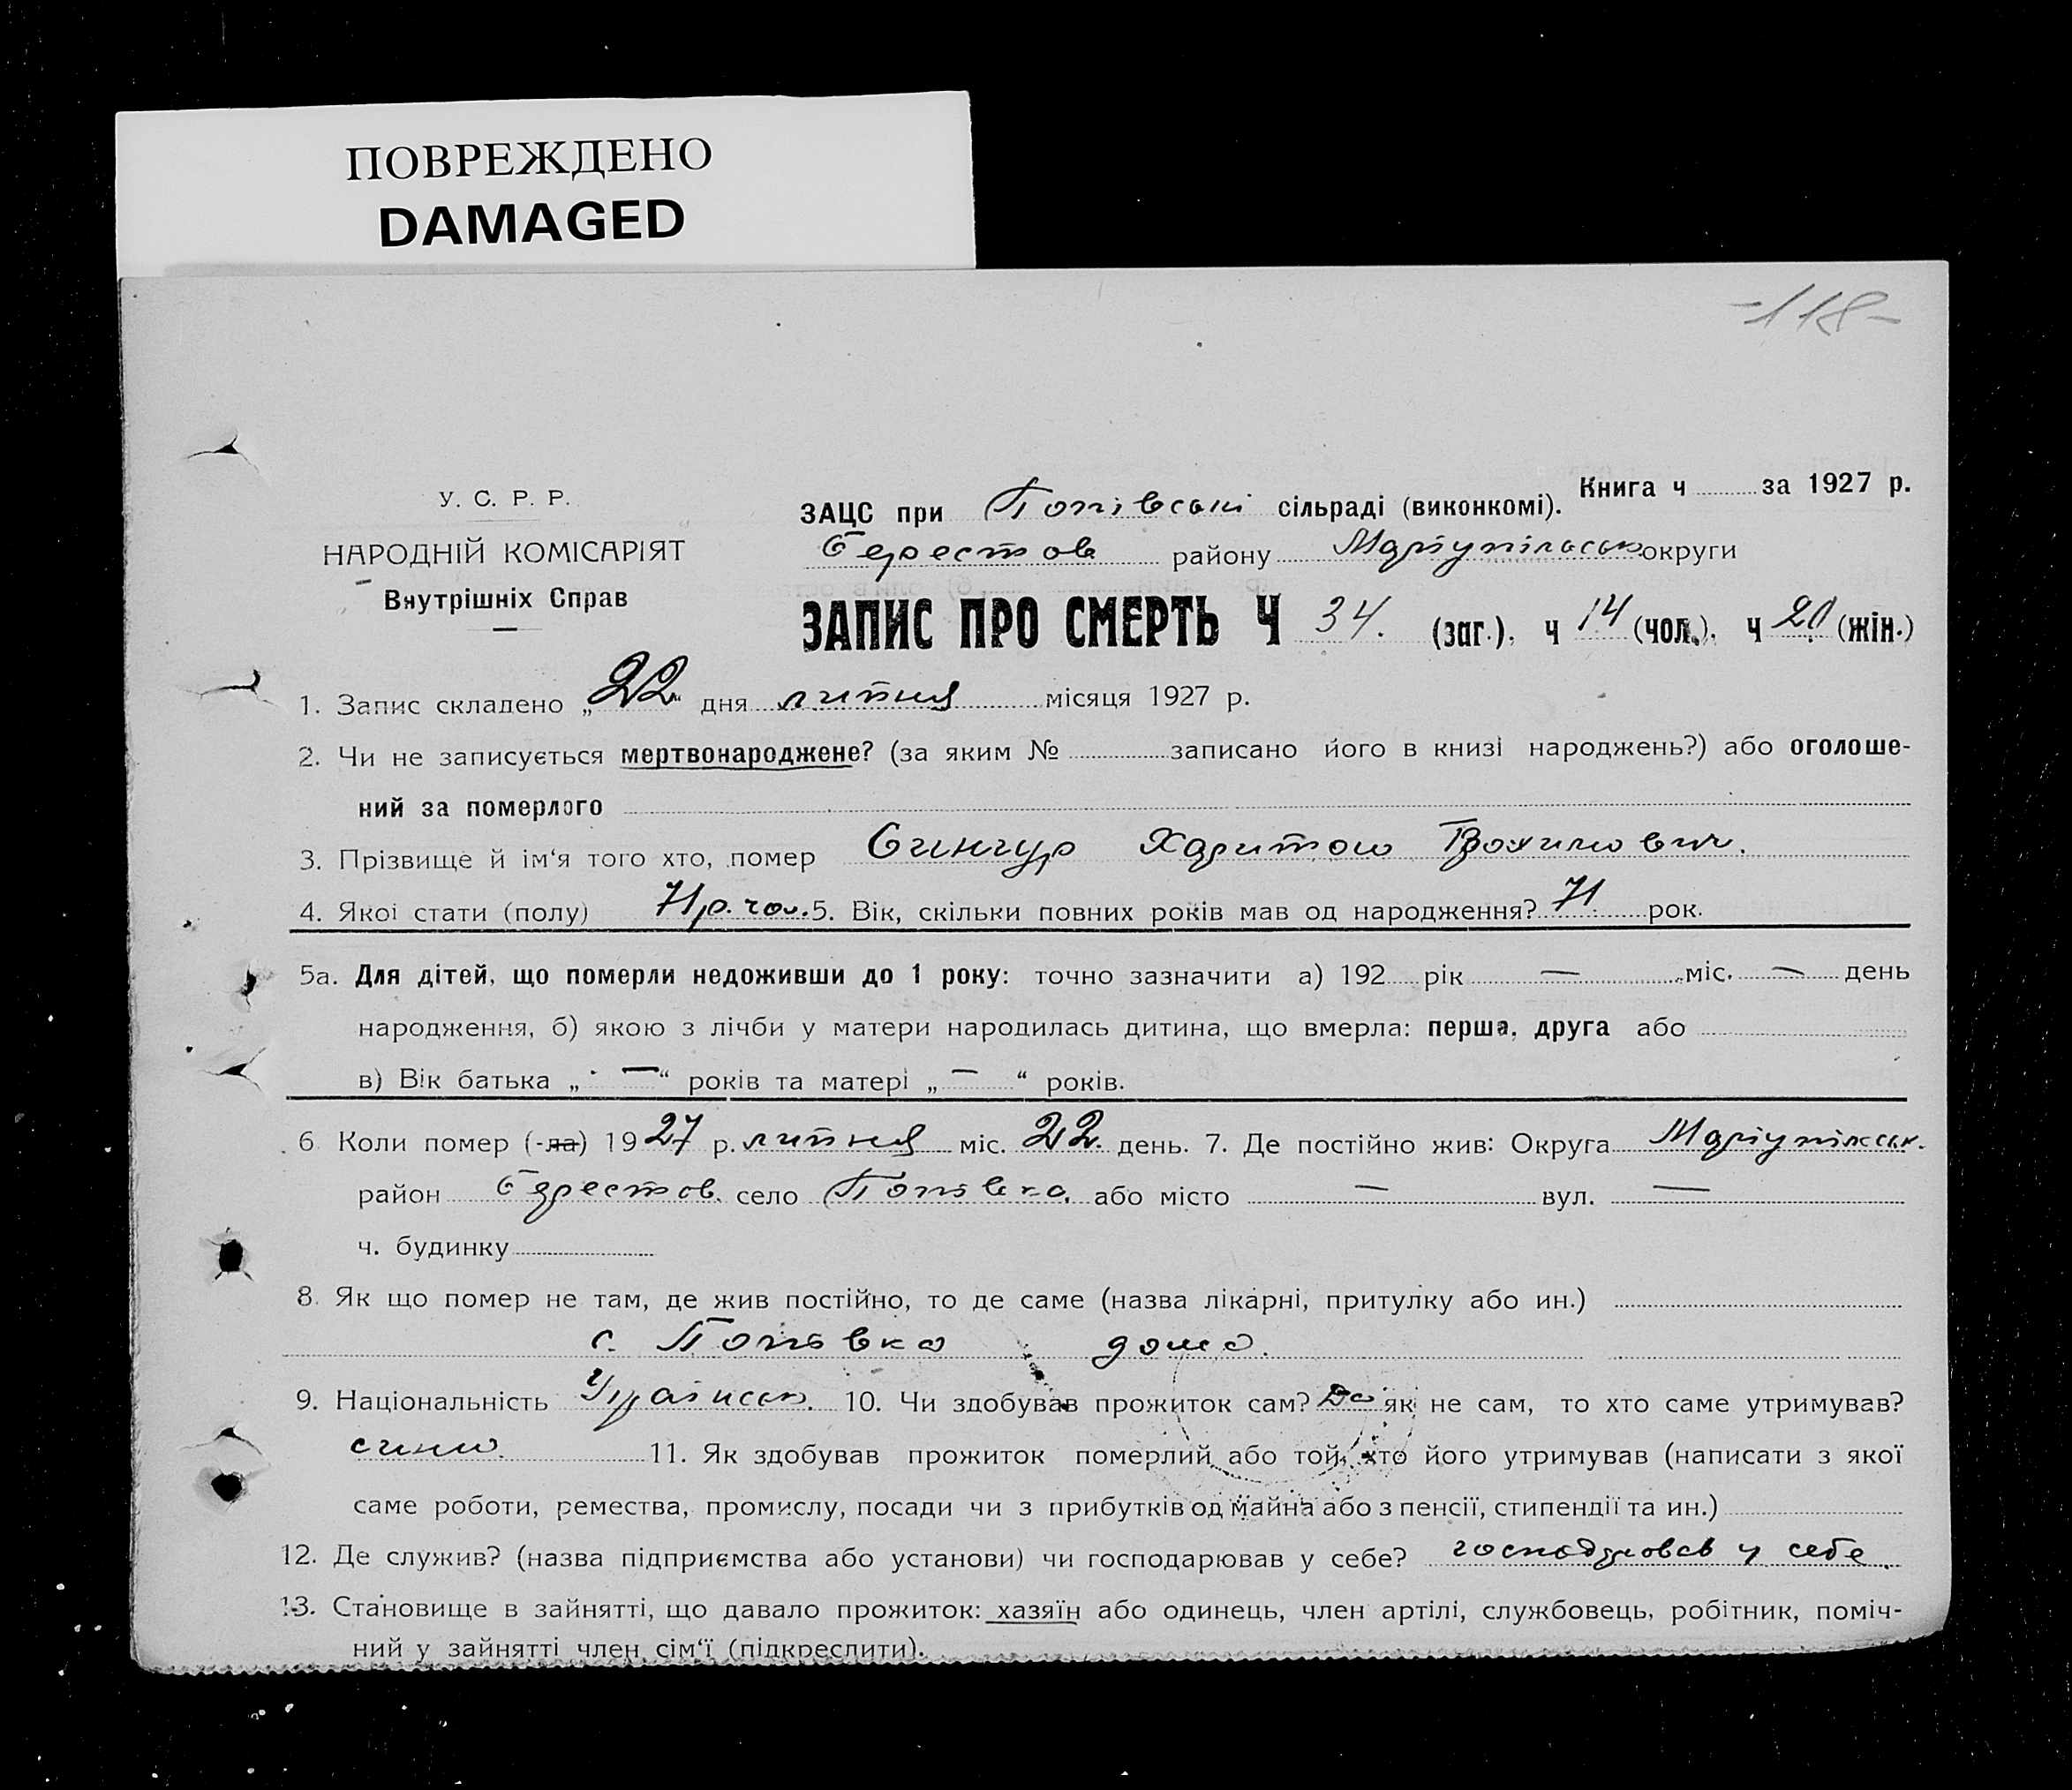 ПОВРЕЖДЕНО
DAMAGED
-118-
У. С. Р. Р.
НАРОДНІЙ КОМІСАРІЯТ
Внутрішніх Справ
Книга ч за 1927 р.
ЗАЦС при Попівські сільраді (виконкомі).
Берестов району Маріупільськ округи
ЗАПИС ПРО СМЕРТЬ Ч 34. (заг.), ч 14 (чол.), ч 20 (жін.)
1. Запис складено „22“ дня липня місяця 1927 р.
2. Чи не записується мертвонароджене? (за яким № записано його в книзі народжень?) або оголоше-
ний за померлого
3. Прізвище й ім‘я того хто, помер Харитон
4. Якої стати (полу) 71 р. чол. 5. Вік, скільки повних років мав од народження? 71 рок.
5а. Для дітей, що померли недоживши до 1 року: точно зазначити а) 192 рік — міс. — день
народження, б) якою з лічби у матери народилась дитина, що вмерла: перша, друга або
в) Вік батька „ — “ років та матері „ — “ років.
6 Коли помер (-ла) 1927 р. липня міс. 22. день. 7. Де постійно жив: Округа Маріупільськ.
район Берестов. село Попівка. або місто — вул. —
ч. будинку
8. Як що помер не там, де жив постійно, то де саме (назва лікарні, притулку або ин.)
с. Попівка дома.
9. Національність Україньск. 10. Чи здобував прожиток сам? як не сам, то хто саме утримував?
11. Як здобував прожиток померлий або той, хто його утримував (написати з якої
саме роботи, ремества, промислу, посади чи з прибутків од майна або з пенсії, стипендії та ин.)
12. Де служив? (назва підприємства або установи) чи господарював у себе? господрював у себе.
13. Становище в зайнятті, що давало прожиток: хазяїн або одинець, член артілі, службовець, робітник, поміч-
ний у зайнятті член сім‘ї (підкреслити).